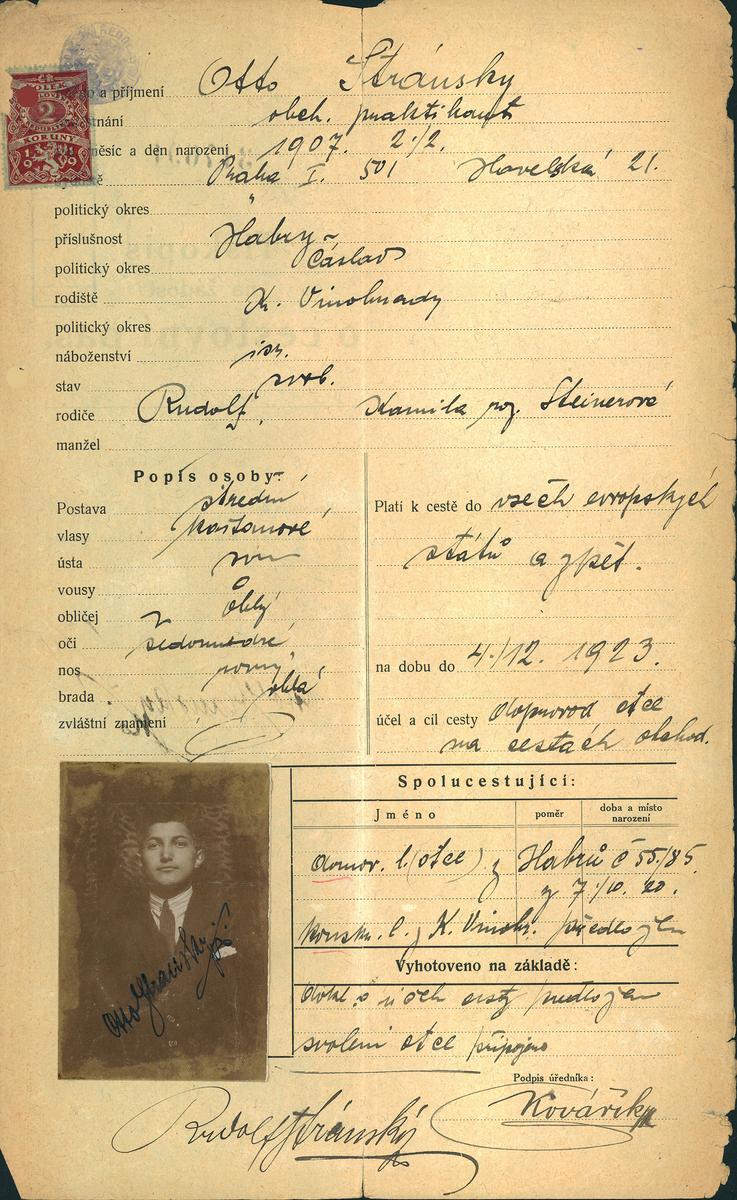 Otto Stránský
a příjmení
obch. praktikant
měsíc a den narození 1907. 2./2.
Praha I. 501 Havelská 21.
politický okres "
příslušnost Habry
politický okres Čáslav
rodiště K. Vinohrady
politický okres
náboženství isr.
stav svob.
rodiče Rudolf, Kamila roz. Steinerová
manžel
Popis osoby:
Postava střední
vlasy kaštanové
ústa
vousy 0
obličej oblý
oči šedomodré
nos rovný
brada oblá
zvláštní znamení
Platí k cestě do všech evropských
států a zpět.
na dobu do 4./12. 1923.
účel a cíl cesty doprovod otce
na cestách obchod.
Spolucestující:
Jméno poměr doba a místo narození
domov. l. (otce) z Habrů č 55/85
z 7./10. 20.
konskr. l. z K. Vinohr. předložen
Vyhotoveno na základě:
dokl. o úč. cesty předložen
svolení otce připojeno
Podpis úředníka:
Kovářík
Rudolf Stránský
Otto Stránský
2
KORUNY
1919